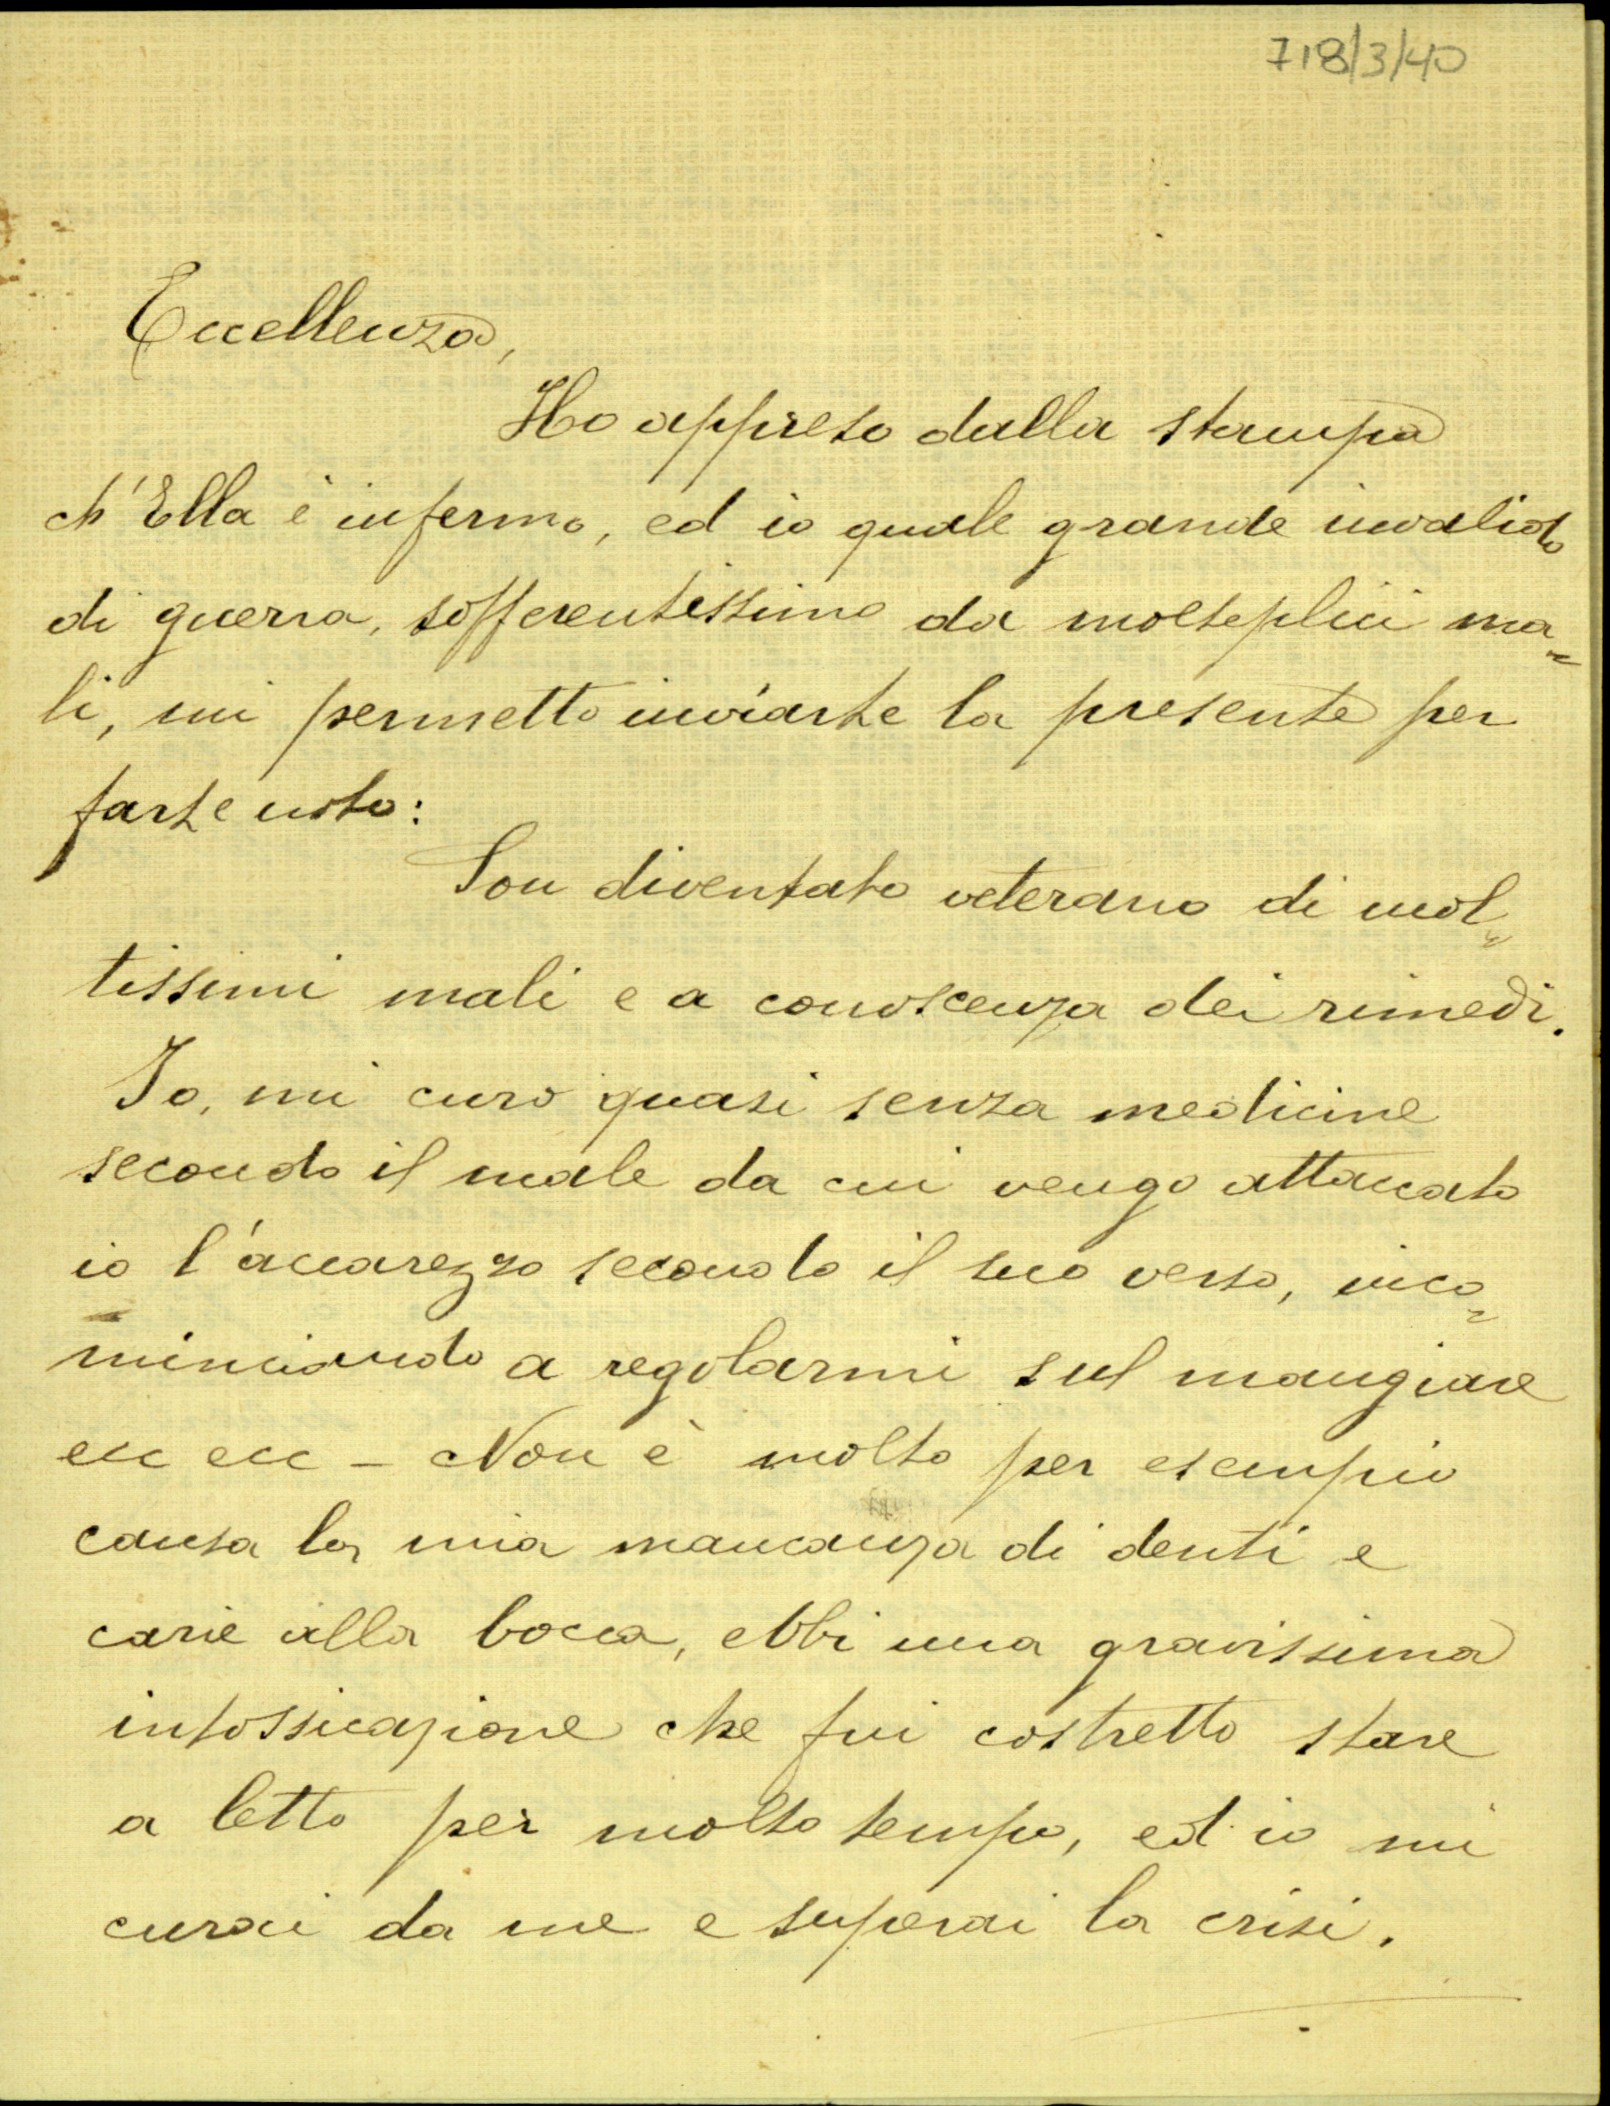 718/3/40
Eccellenza,
Ho appreso dalla stampa
ch'Ella è infermo, ed io quale grande invalido
di guerra, sofferentissimo da molteplici ma=
li, mi permetto inviarle la presente per
farle noto:
Son diventato veterano di mol=
tissimi mali e a conoscenza dei rimedi.
Io, mi curo quasi senza medicine
secondo il male da cui vengo attaccato
io l'accarezzo secondo il suo verso, inco=
minciando a regolarmi sul mangiare
ecc ecc - Non è molto per esempio
causa la mia mancanza di denti e
carie alla bocca, ebbi una gravissima
intossicazione che fui costretto stare
a letto per molto tempo, ed io mi
curai da me e superai la crisi.